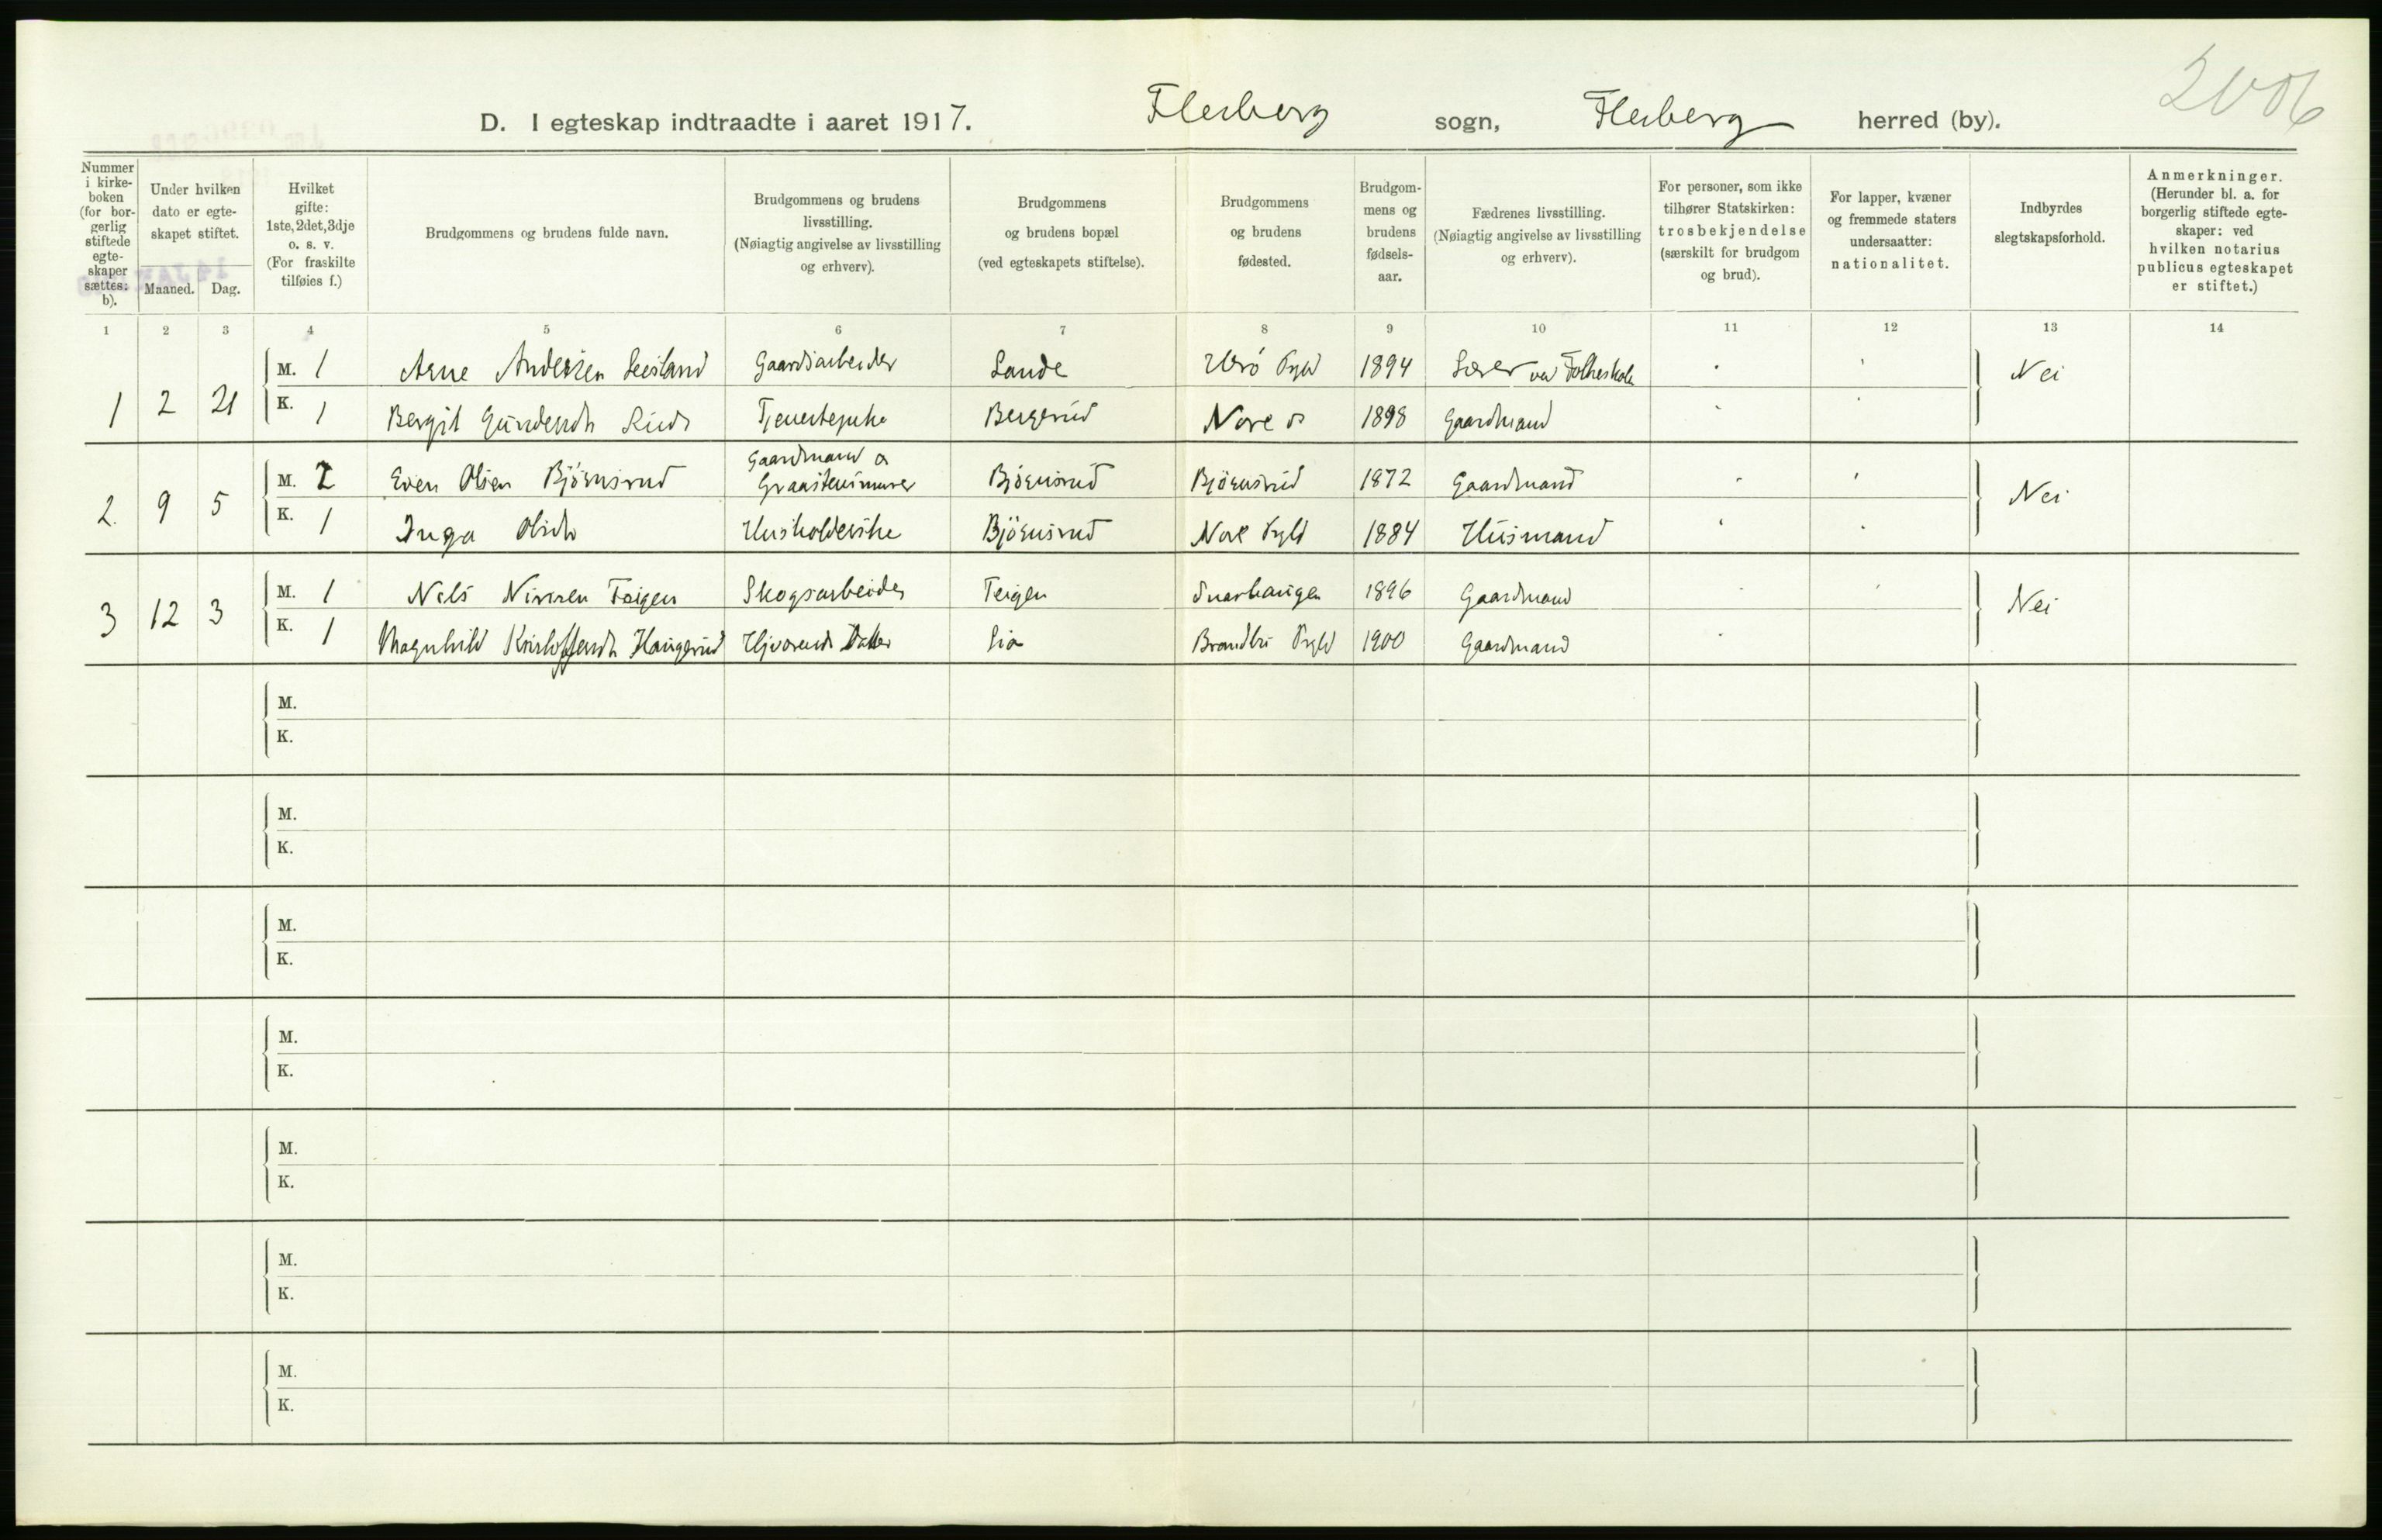 D. I egteskap indtraadte i aaret 1917. Flesberg sogn, Flesberg herred (by).
Nummer i kirkeboken (for borgerlig stiftede egteskaper sættes: b).
Under hvilken dato er egteskapet stiftet.
Maaned. Dag.
Hvilket gifte: 1ste, 2det, 3dje o. s. v. (For fraskilte tilføies f.)
Brudgommens og brudens fulde navn.
Brudgommens og brudens livsstilling. (Nøiagtig angivelse av livsstilling og erhverv).
Brudgommens og brudens bopæl (ved egteskapets stiftelse).
Brudgommens og brudens fødested.
Brudgommens og brudens fødselsaar.
Fædrenes livsstilling. (Nøiagtig angivelse av livsstilling og erhverv).
For personer, som ikke tilhører Statskirken: trosbekjendelse (særskilt for brudgom og brud).
For lapper, kvæner og fremmede staters undersaatter: nationalitet.
Indbyrdes slegtskapsforhold.
Anmerkninger. (Herunder bl. a. for borgerlig stiftede egteskaper: ved hvilken notarius publicus egteskapet er stiftet.)
1 2 3 4 5 6 7 8 9 10 11 12 13 14
1 2 21 M. 1 Arne Andersen Gaardsarbeider Lande Uvrô Pgld 1894 Lærer ved Folkeskole Nei
K. 1 Bergit Gundersdr Ruud Tjenestepike Bergerud Nore 1898 Gaardmand
2. 9 5 M. 2 Even Olsen Björnsrud Gaardmand &
Graastensmurer Björnsrud Björnsrud 1872 Gaardmand Nei
K. 1 Inga Olsdr Husholderske Björnsrud Nore Pgld 1884 Husmand
3 12 3 M. 1 Nils Nirisen Teigen Skogsarbeider Teigen Snarhaugen 1896 Gaardmand Nei
K. 1 Magnhild Kristoffersdr Haugerud Hjværende Datter Lia Brandbu Pgld 1900 Gaardmand
M.
K.
M.
K.
M.
K.
M.
K.
M.
K.
M.
K.
M.
K.